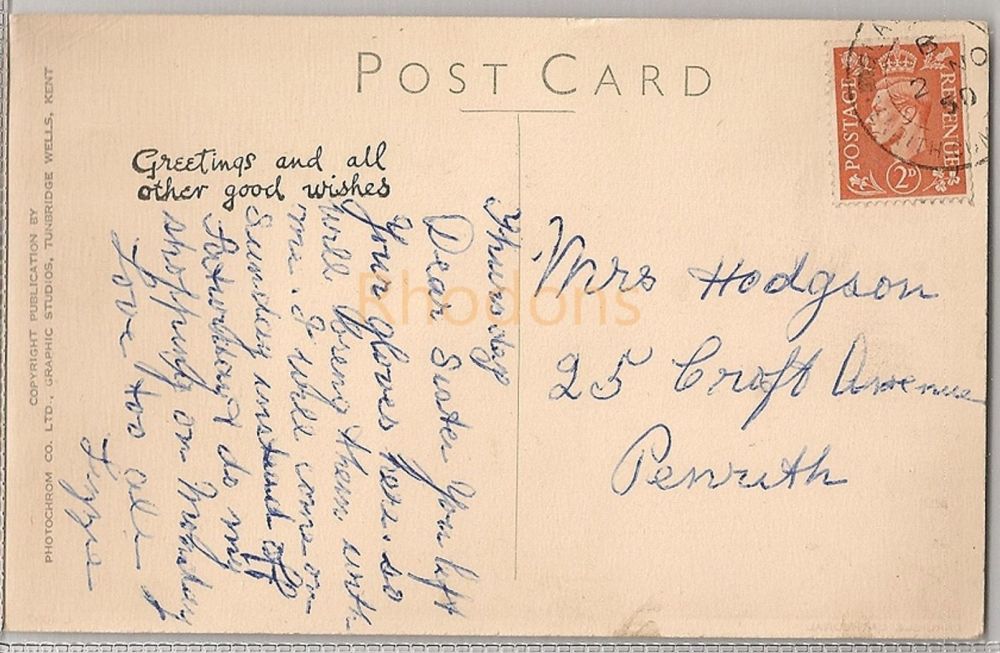 POST CARD
COPYRIGHT PUBLICATION BY
PHOTOCHROM CO. LTD., GRAPHIC STUDIOS, TUNBRIDGE WELLS, KENT
Greetings and all
other good wishes
Thursday
Dear Sister You left
Your gloves here. so
will bring them with
me. I will come on
Sunday instead off
Saturday & do my
shopping on Monday
Love too all
Lizzie
Mrs Hodgson
25 Croft Avenue
Penrith
POSTAGE
REVENUE
2D
Rhodons